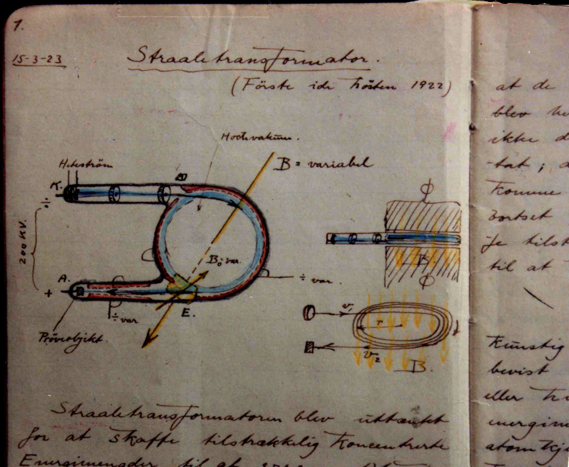 1.
15-3-23
Straaletransformator.
(Förste idé hösten 1922)
Hochvakuum.
Hetzström
B = variabel
K.
÷
200 KV.
B₀ : var.
÷ var.
A.
+
÷ var
E.
Pröveobjekt.
Φ
B
Φ
v₁
r
v₂
B.
Straaletransformatoren blev uttænkt
for at skaffe tilstrækkelig koncentrerte
Energimengder til at
at de
blev
ikke
tat ;
komme
bortset
je tilst
til at
Kunstig
bevist
eller
energim
atomkj